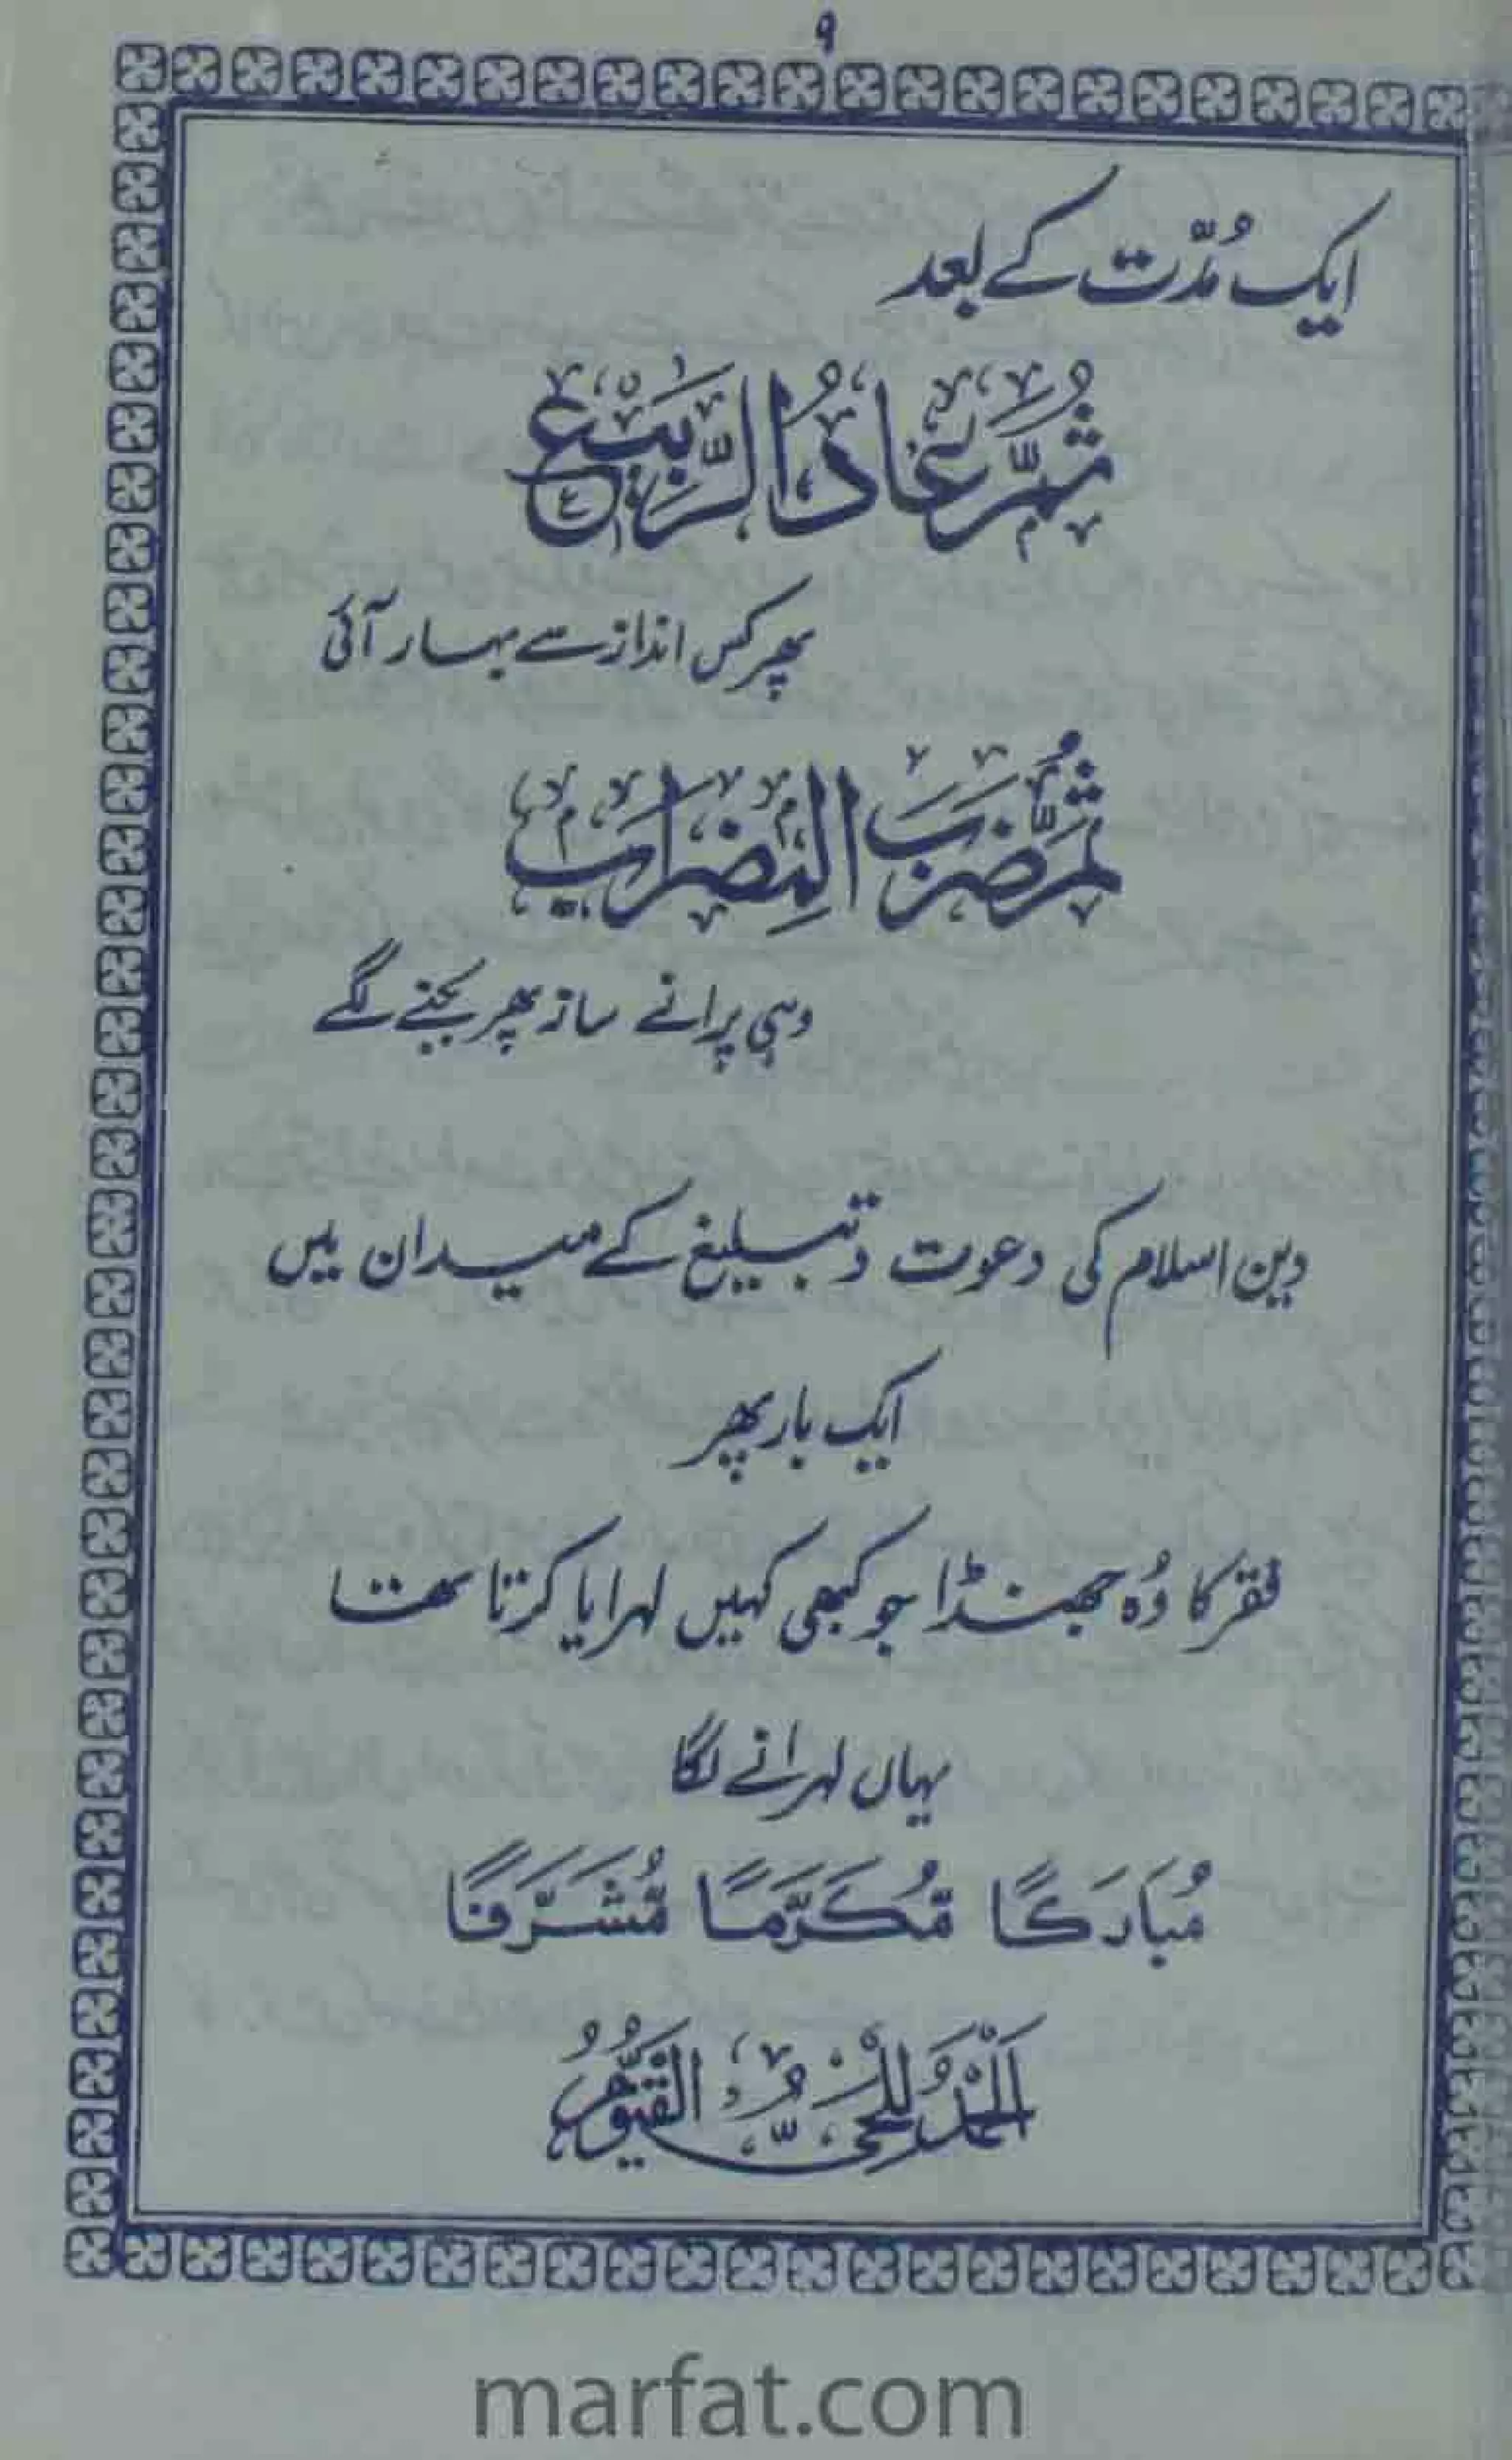 ۹
ایک مُدّت کے بعد
ثُمَّ عَادُ الرَّبَیْعِ
پھر کس انداز سے بہار آئی
ثُمَّ ضَرَبَ الْمِضْرَابِ
وہی پرانے ساز پھر بجنے لگے
دین اسلام کی دعوت و تبلیغ کے میدان میں
ایک بار پھر
فقر کا وُہ جھنڈا جو کبھی کہیں لہرایا کرتا تھا
یہاں لہرانے لگا
مُبَارَكًا مُّكَرَّمًا مُّشَرَّفًا
اَلْحَمْدُ لِلْحَیِّ الْقَیُّوْمِ
marfat.com